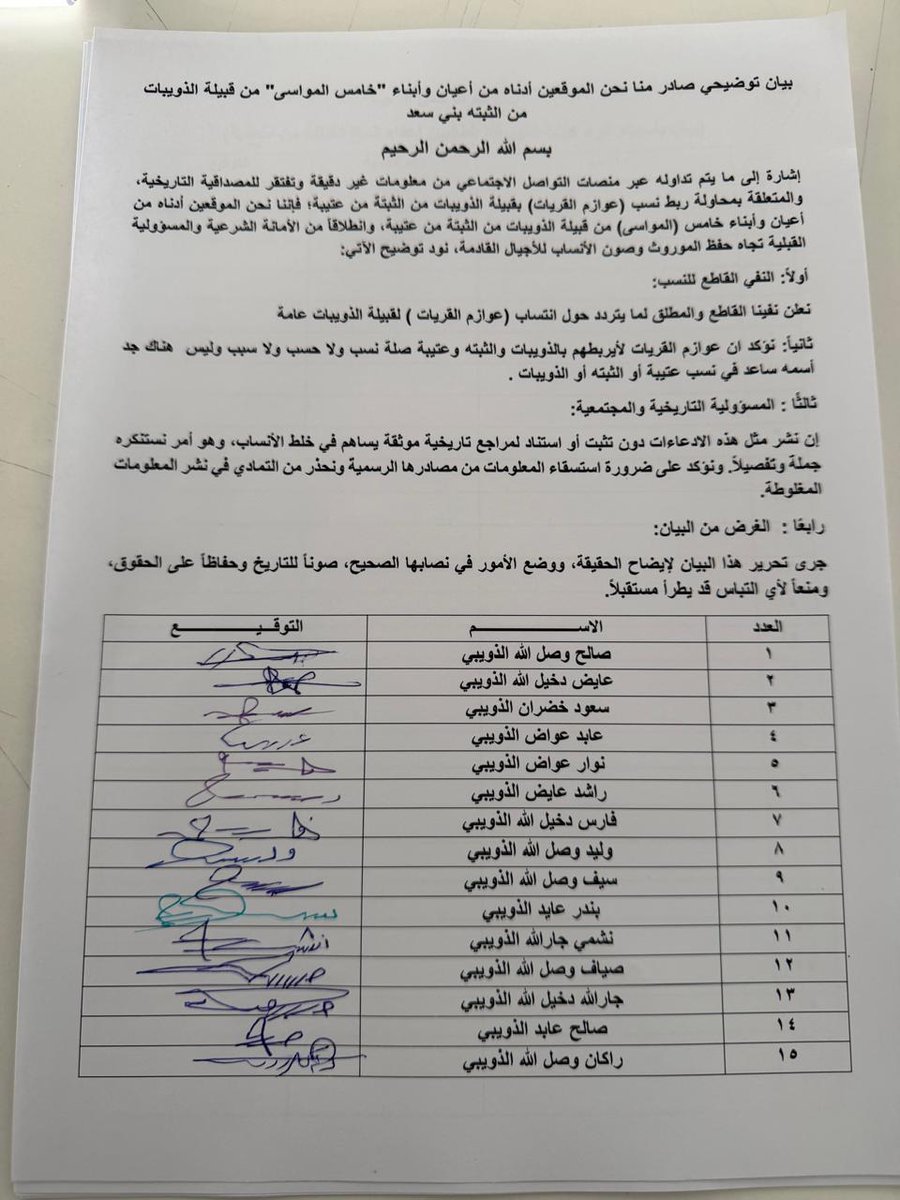 بيان توضيحي صادر منا نحن الموقعين أدناه من أعيان وأبناء "خامس المواسى" من قبيلة الذويبات
من الثبته بني سعد
بسم الله الرحمن الرحيم
إشارة إلى ما يتم تداوله عبر منصات التواصل الاجتماعي من معلومات غير دقيقة وتفتقر للمصداقية التاريخية،
والمتعلقة بمحاولة ربط نسب (عوازم القريات) بقبيلة الذويبات من الثبتة من عتيبة؛ فإننا نحن الموقعين أدناه من
أعيان وأبناء خامس (المواسى) من قبيلة الذويبات من الثبتة من عتيبة، وانطلاقاً من الأمانة الشرعية والمسؤولية
القبلية تجاه حفظ الموروث وصون الأنساب للأجيال القادمة، نود توضيح الآتي:
أولاً: النفي القاطع للنسب:
نعلن نفينا القاطع والمطلق لما يتردد حول انتساب (عوازم القريات ) لقبيلة الذويبات عامة
ثانياً: نؤكد ان عوازم القريات لأيربطهم بالذويبات والثبته وعتيبة صلة نسب ولا حسب ولا سبب وليس هناك جد
أسمه ساعد في نسب عتيبة أو الثبته أو الذويبات .
ثالثًا : المسؤولية التاريخية والمجتمعية:
إن نشر مثل هذه الادعاءات دون تثبت أو استناد لمراجع تاريخية موثقة يساهم في خلط الأنساب، وهو أمر نستنكره
جملة وتفصيلاً. ونؤكد على ضرورة استسقاء المعلومات من مصادرها الرسمية ونحذر من التمادي في نشر المعلومات
المغلوطة.
رابعًا : الغرض من البيان:
جرى تحرير هذا البيان لإيضاح الحقيقة، ووضع الأمور في نصابها الصحيح، صوناً للتاريخ وحفاظاً على الحقوق،
ومنعاً لأي التباس قد يطرأ مستقبلاً.
العدد الاســـــــم التوقيـــــــع
١ صالح وصل الله الذويبي
٢ عايض دخيل الله الذويبي
٣ سعود خضران الذويبي
٤ عابد عواض الذويبي
٥ نوار عواض الذويبي
٦ راشد عايض الذويبي
٧ فارس دخيل الله الذويبي
٨ وليد وصل الله الذويبي
٩ سيف وصل الله الذويبي
١٠ بندر عايد الذويبي
١١ نشمي جارالله الذويبي
١٢ صياف وصل الله الذويبي
١٣ جارالله دخيل الله الذويبي
١٤ صالح عابد الذويبي
١٥ راكان وصل الله الذويبي